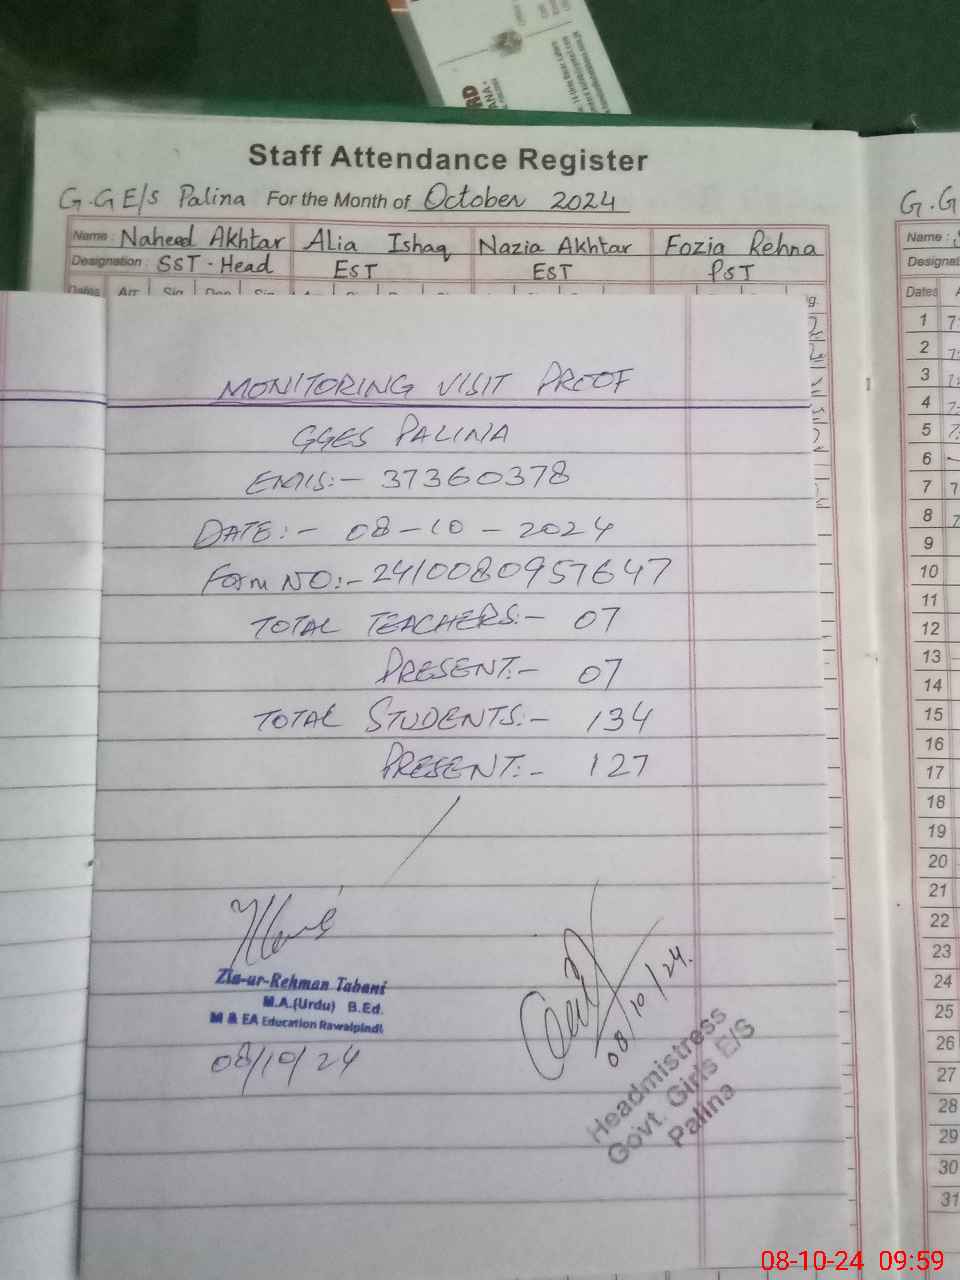 Staff Attendance Register
G.G E/S Palina For the Month of October 2024
Name : Naheed Akhtar Alia Ishaq Nazia Akhtar Fozia Rehna
Designation : SST - Head EST EST PST
Dates Arr Sig Dep Sig
MONITORING VISIT PROOF
GGES PALINA
EMIS:- 37360378
DATE:- 08-10-2024
Form NO:- 2410080957647
TOTAL TEACHERS:- 07
PRESENT:- 07
TOTAL STUDENTS:- 134
PRESENT:- 127
Zia-ur-Rehman Tabani
M.A.(Urdu) B.Ed.
M & EA Education Rawalpindi
08/10/24
08/10/24.
Headmistress
Govt. Girls E/S
Palina
G.G
Name :
Designat
Dates
1
2
3
4
5
6
7
8
9
10
11
12
13
14
15
16
17
18
19
20
21
22
23
24
25
26
27
28
29
30
31
08-10-24 09:59